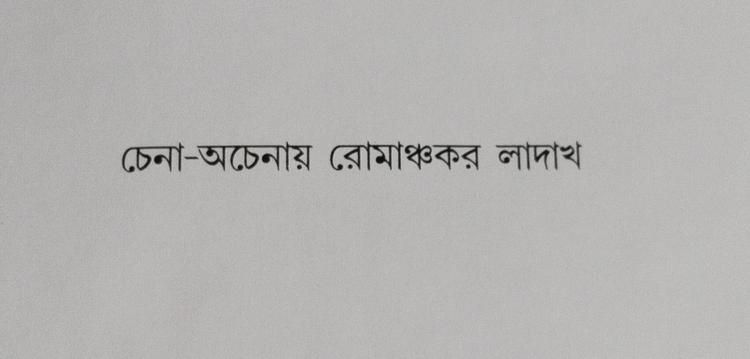 চেনা-অচেনায় রোমাঞ্চকর লাদাখ